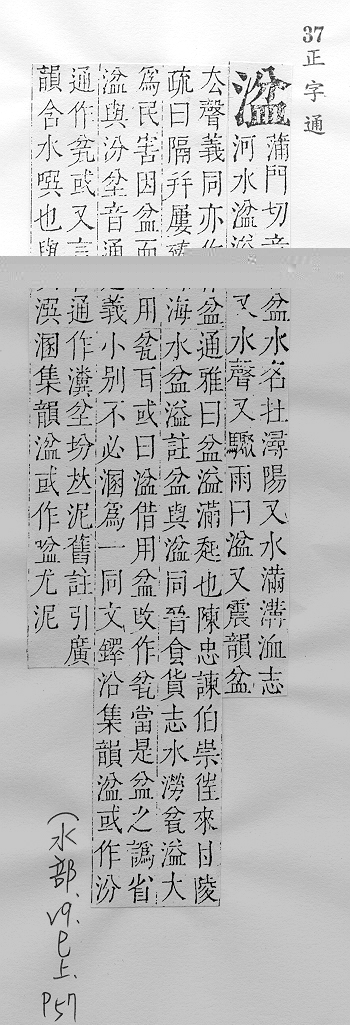 37
正字通
湓
蒲門切音盆水名在潯陽又水滿溝洫志
河水湓溢又水聲又驟雨曰湓又震韻盆
去聲義同亦作盆通雅曰盆溢滿起也陳忠諫伯崇徃來甘陵
疏曰隔幷屢臻海水盆溢註盆與湓同晉食貨志水澇瓫溢大
爲民害因盆而用瓫百或曰湓借用盆攺作瓫當是盆之譌省
湓與汾坌音通義小别不必溷爲一同文鐸沿集韻湓或作汾
通作瓫或又言通作瀵坌坋𠀤泥舊註引廣
韻含水噀也與潠溷集韻湓或作㖹尤泥
(水部.
巳上.
P57